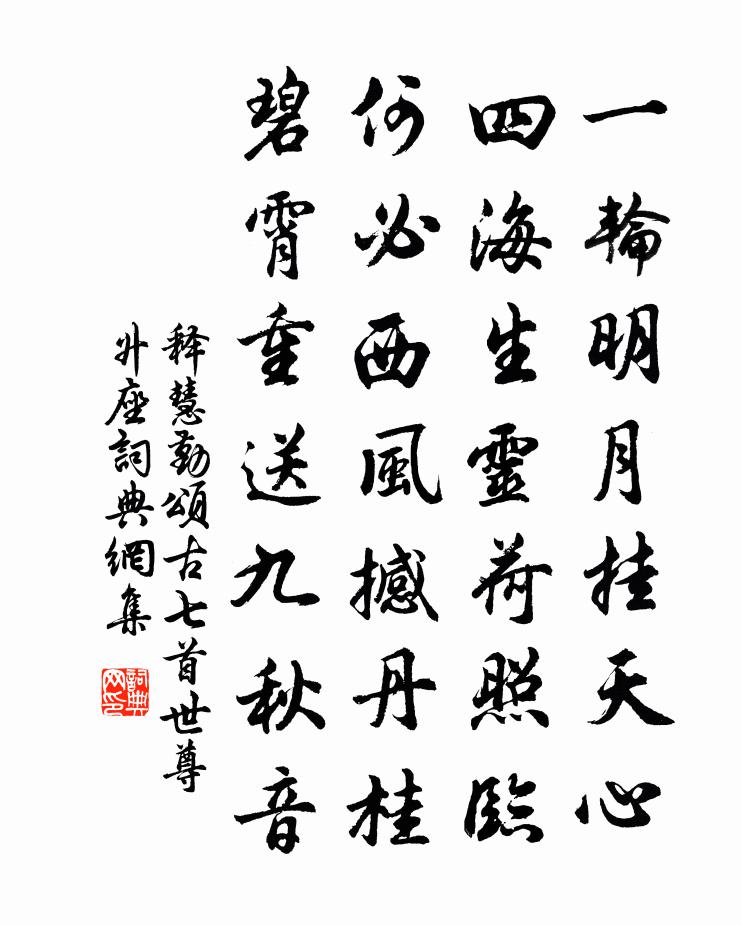 一輪明月挂天心
四海生靈荷照臨
何必西風撼丹桂
碧霄重送九秋音
释慧勤頌古七首世尊
升座詞典網集
詞典
网印